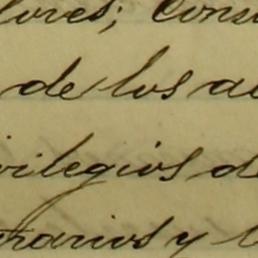 lores; Cons
de los a
vilegios de
rarios y